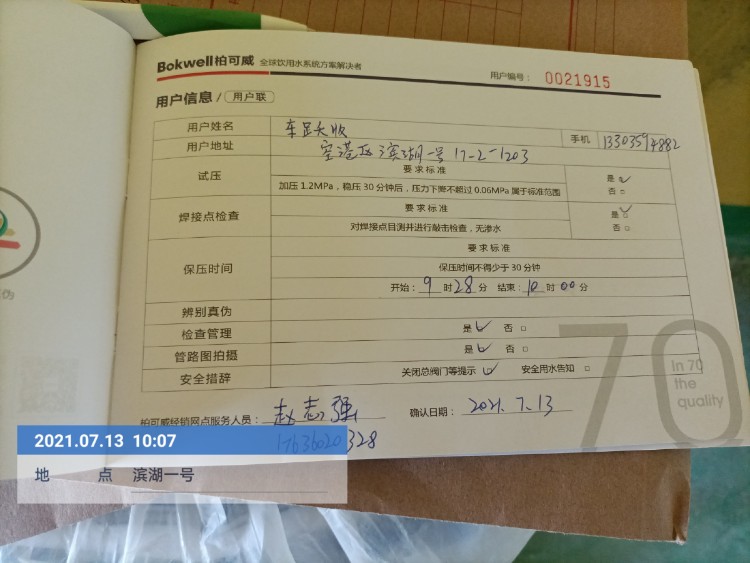 Bokwell柏可威 全球饮用水系统方案解决者
用户编号: 0021915
用户信息 / 用户联
用户姓名
用户地址 空港区滨湖一号 17-2-1203 手机
试压 要求标准
加压 1.2MPa，稳压 30 分钟后，压力下降不超过 0.06MPa 属于标准范围 是 ✓ 否 □
焊接点检查 要求标准
对焊接点目测并进行敲击检查，无渗水 是 ✓ 否 □
保压时间 要求标准
保压时间不得少于 30 分钟
开始: 9 时 28 分 结束: 10 时 00 分
辨别真伪
检查管理 是 ✓ 否 □
管路图拍摄 是 ✓ 否 □
安全措辞 关闭总阀门等提示 ✓ 安全用水告知 □
柏可威经销网点服务人员: 赵志强 确认日期: 2021.7.13
17636020328
70
In 70
the
quality
2021.07.13 10:07
地 点 滨湖一号
伪